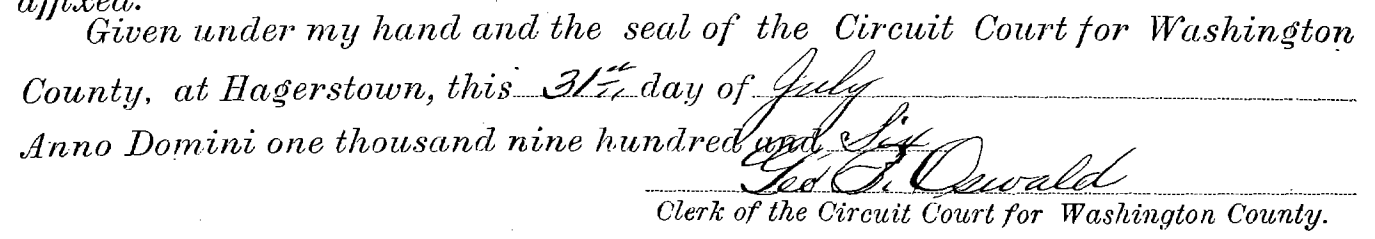 affixed.
Given under my hand and the seal of the Circuit Court for Washington
County, at Hagerstown, this 31st day of July
Anno Domini one thousand nine hundred and Six
Geo B. Oswald
Clerk of the Circuit Court for Washington County.